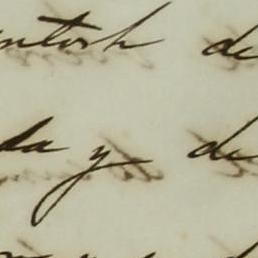 ntosh de
da y de